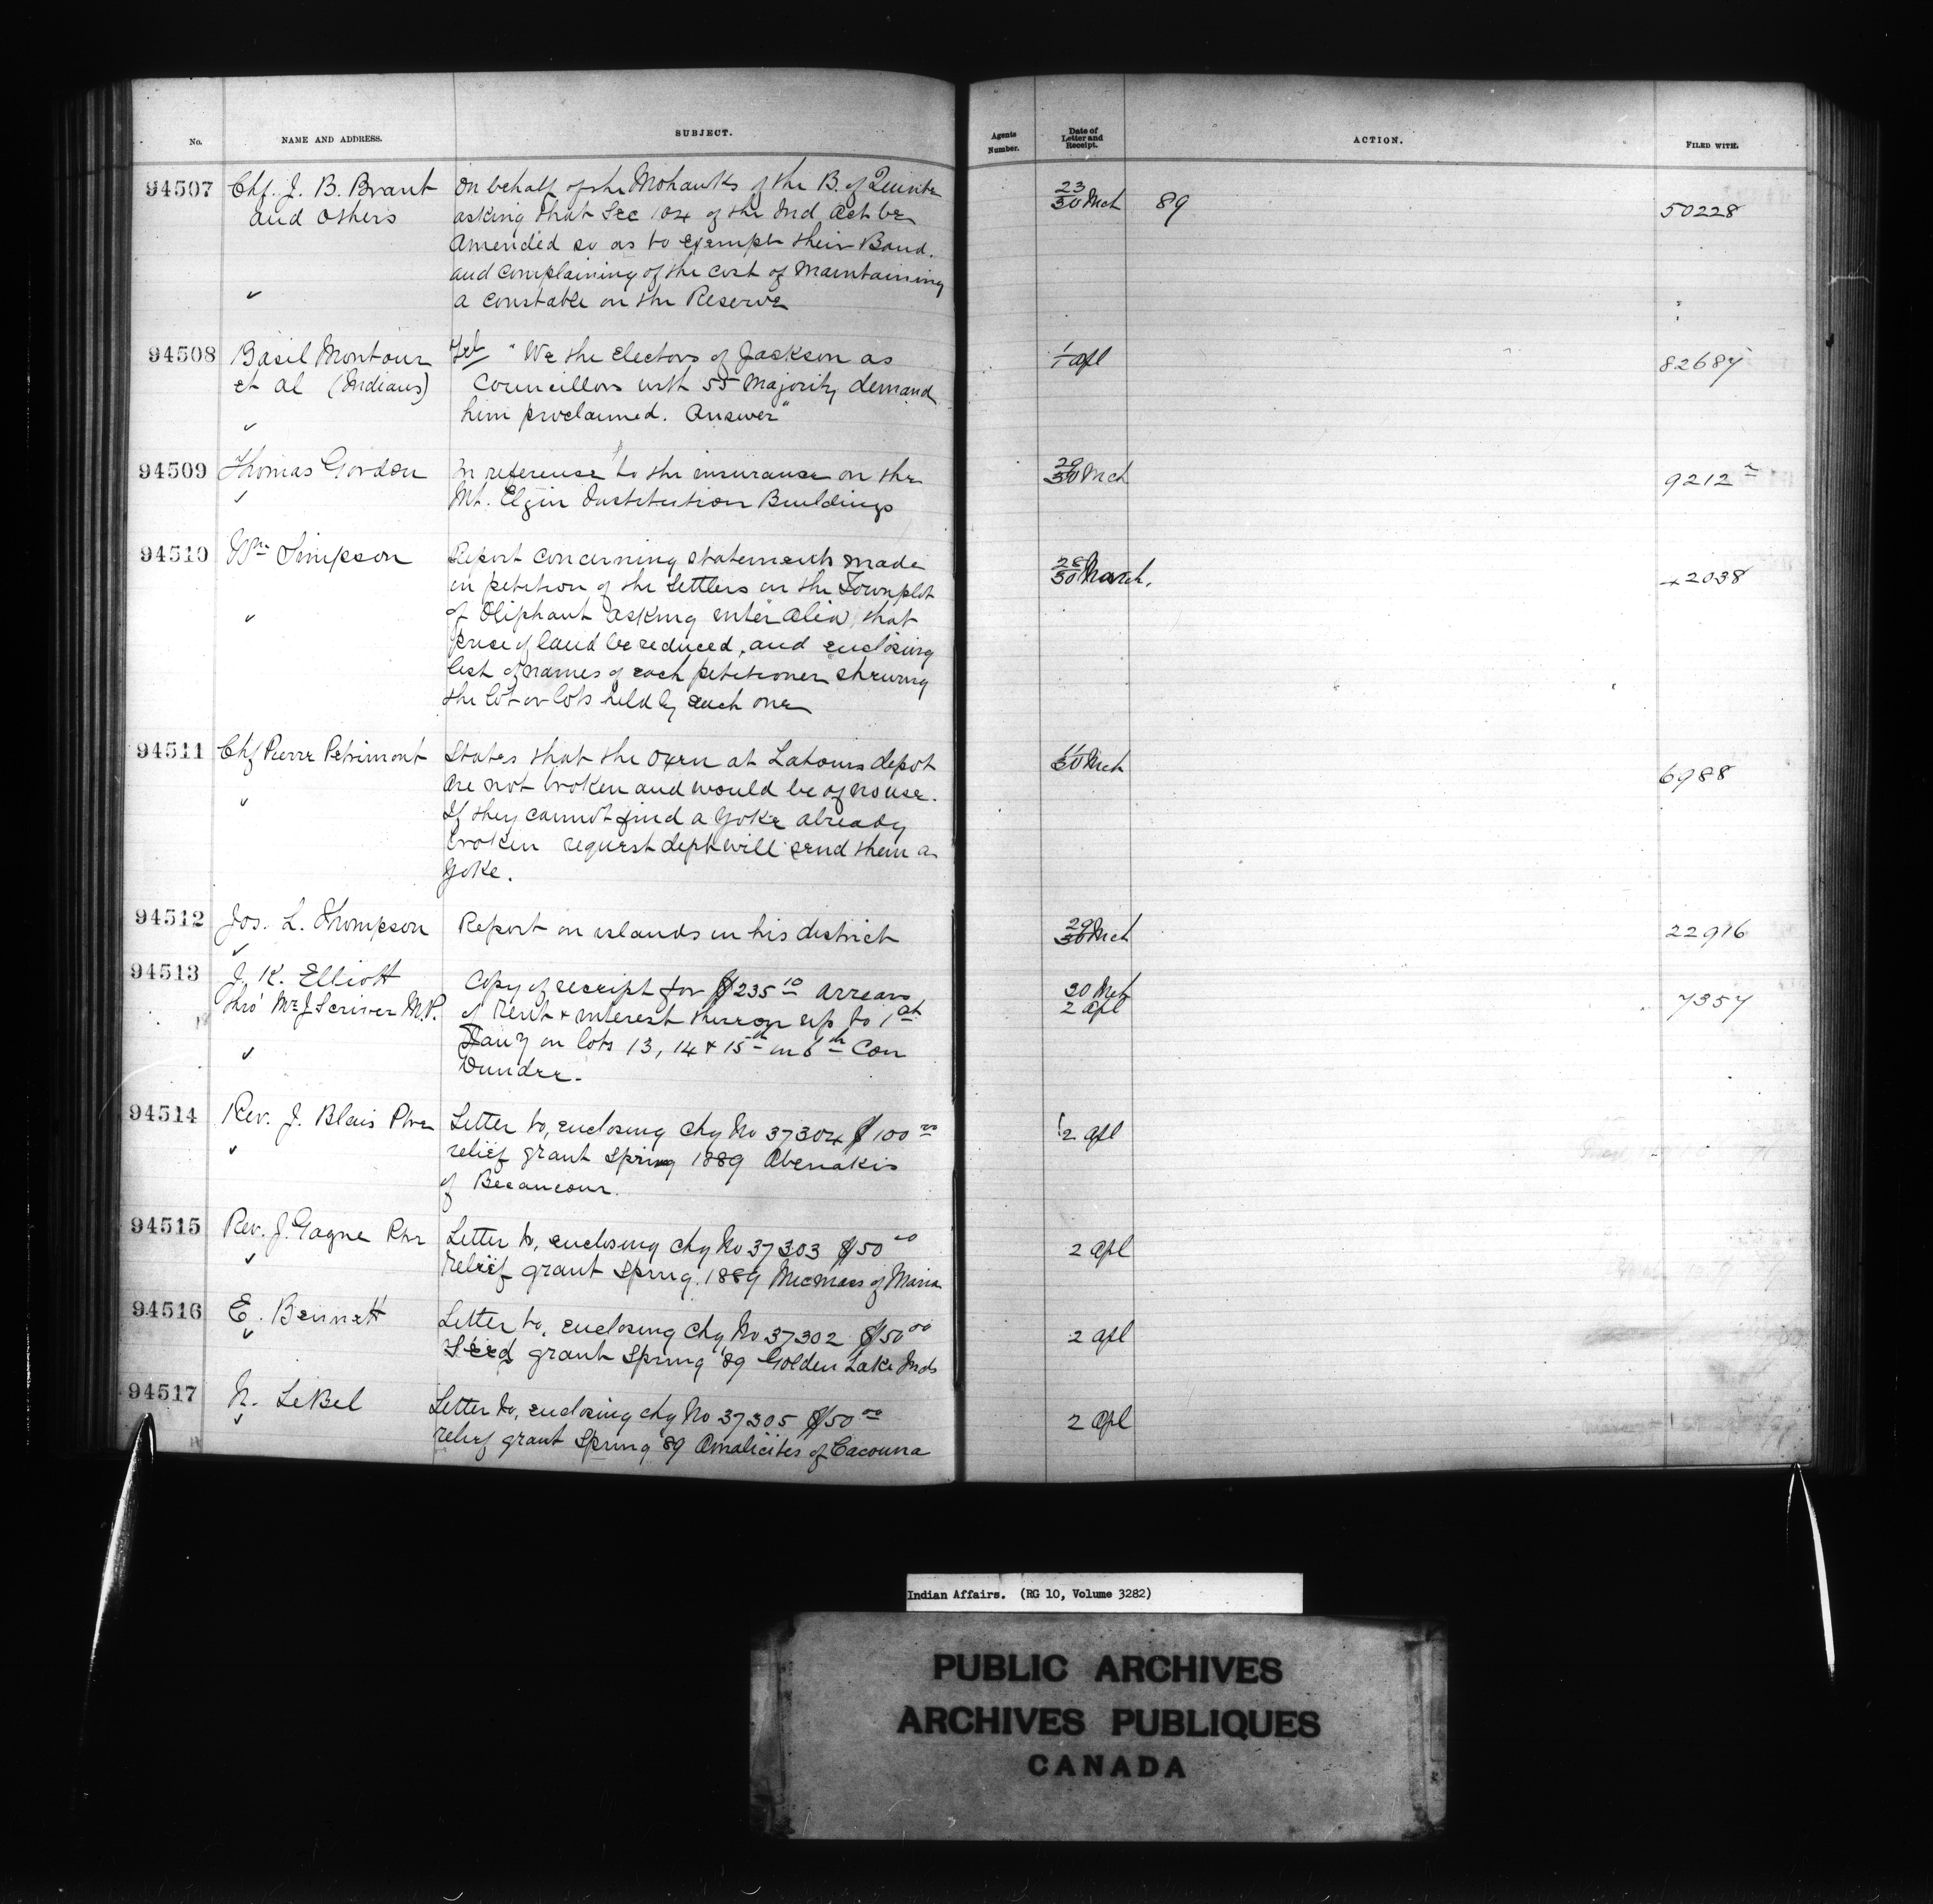 No.
NAME AND ADDRESS.
SUBJECT.
Agents
Number.
Date of
Letter and
Receipt.
ACTION.
FILED WITH.
94507
Chf. J. B. Brant
and others
✓
On behalf of the Mohawks of the B. of Quinte
asking that Sec 104 of the Ind Act be
Amended so as to exempt their Band.
and complaining of the cost of maintaining
a constable on the Reserve
23
30 Mch
89
50228
94508
Basil Montour
et al (Indians)
✓
Tel "We the Electors of Jackson as
Councillor with 55 Majority demand
him proclaimed. Answer"
1
1 Apl
82687
94509
Thomas Gordon
✓
In reference to the insurance on the
Mt. Elgin Institution Buildings
29
30 Mch
9212
94510
Wm Simpson
✓
Report concerning statements made
in petition of the Settlers in the Townplot
of Oliphant asking inter alia, that
price of land be reduced, and enclosing
list of names of each petitioner shewing
the lot or lots held by each one
28
30 March.
42038
94511
Chf Pierre Petrimont
✓
States that the Oxen at Latours depot
are not broken and would be of no use.
If they cannot find a Yoke already
broken request dept will send them a
Yoke.
11
30 Mch
6988
94512
Jos. L. Thompson
✓
Report on islands in his district
29
30 Mch
22916
94513
J. K. Elliott
thro' Mr J Scriver M.P.
✓
Copy of receipt for $235 10 arrears
of Rent & interest thereon up to 1st
Jany on lots 13, 14 & 15th in 6th Con
Dundee.
30 Mch
2 Apl
7357
94514
Rev. J. Blais Ptre
✓
Letter to, enclosing chq No 37304 $100 00
relief grant Spring 1889 Abenakis
of Becancour.
2 Apl
94515
Rev. J. Gagne Ptre
✓
Letter to, enclosing chq No 37303 $50 00
relief grant Spring. 1889 Micmacs of Maria
2 Apl
94516
E. Bennett
✓
Letter to, enclosing chq No 37302 $50 00
Seed grant Spring '89 Golden Lake Inds
2 Apl
94517
N. LeBel
✓
Letter to, enclosing chq No 37305 $50 00
relief grant Spring '89 Amalicites of Cacouna
2 Apl
Indian Affairs. (RG 10, Volume 3282)
PUBLIC ARCHIVES
ARCHIVES PUBLIQUES
CANADA